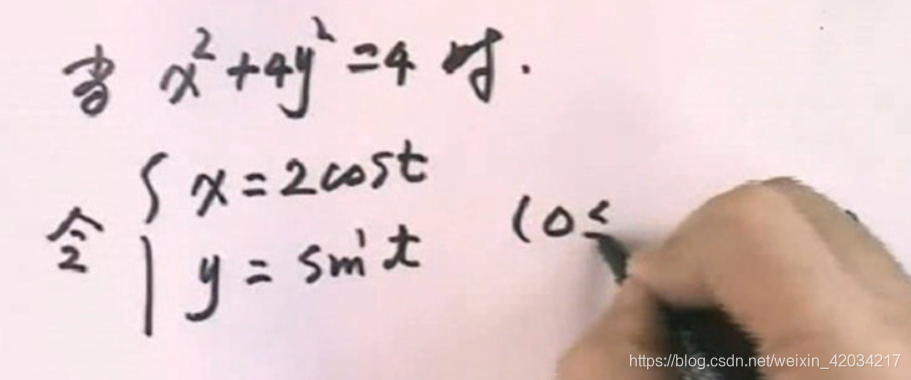 当 x²+4y²=4 时.
令 { x=2cost
y=sint (0≤
https://blog.csdn.net/weixin_42034217